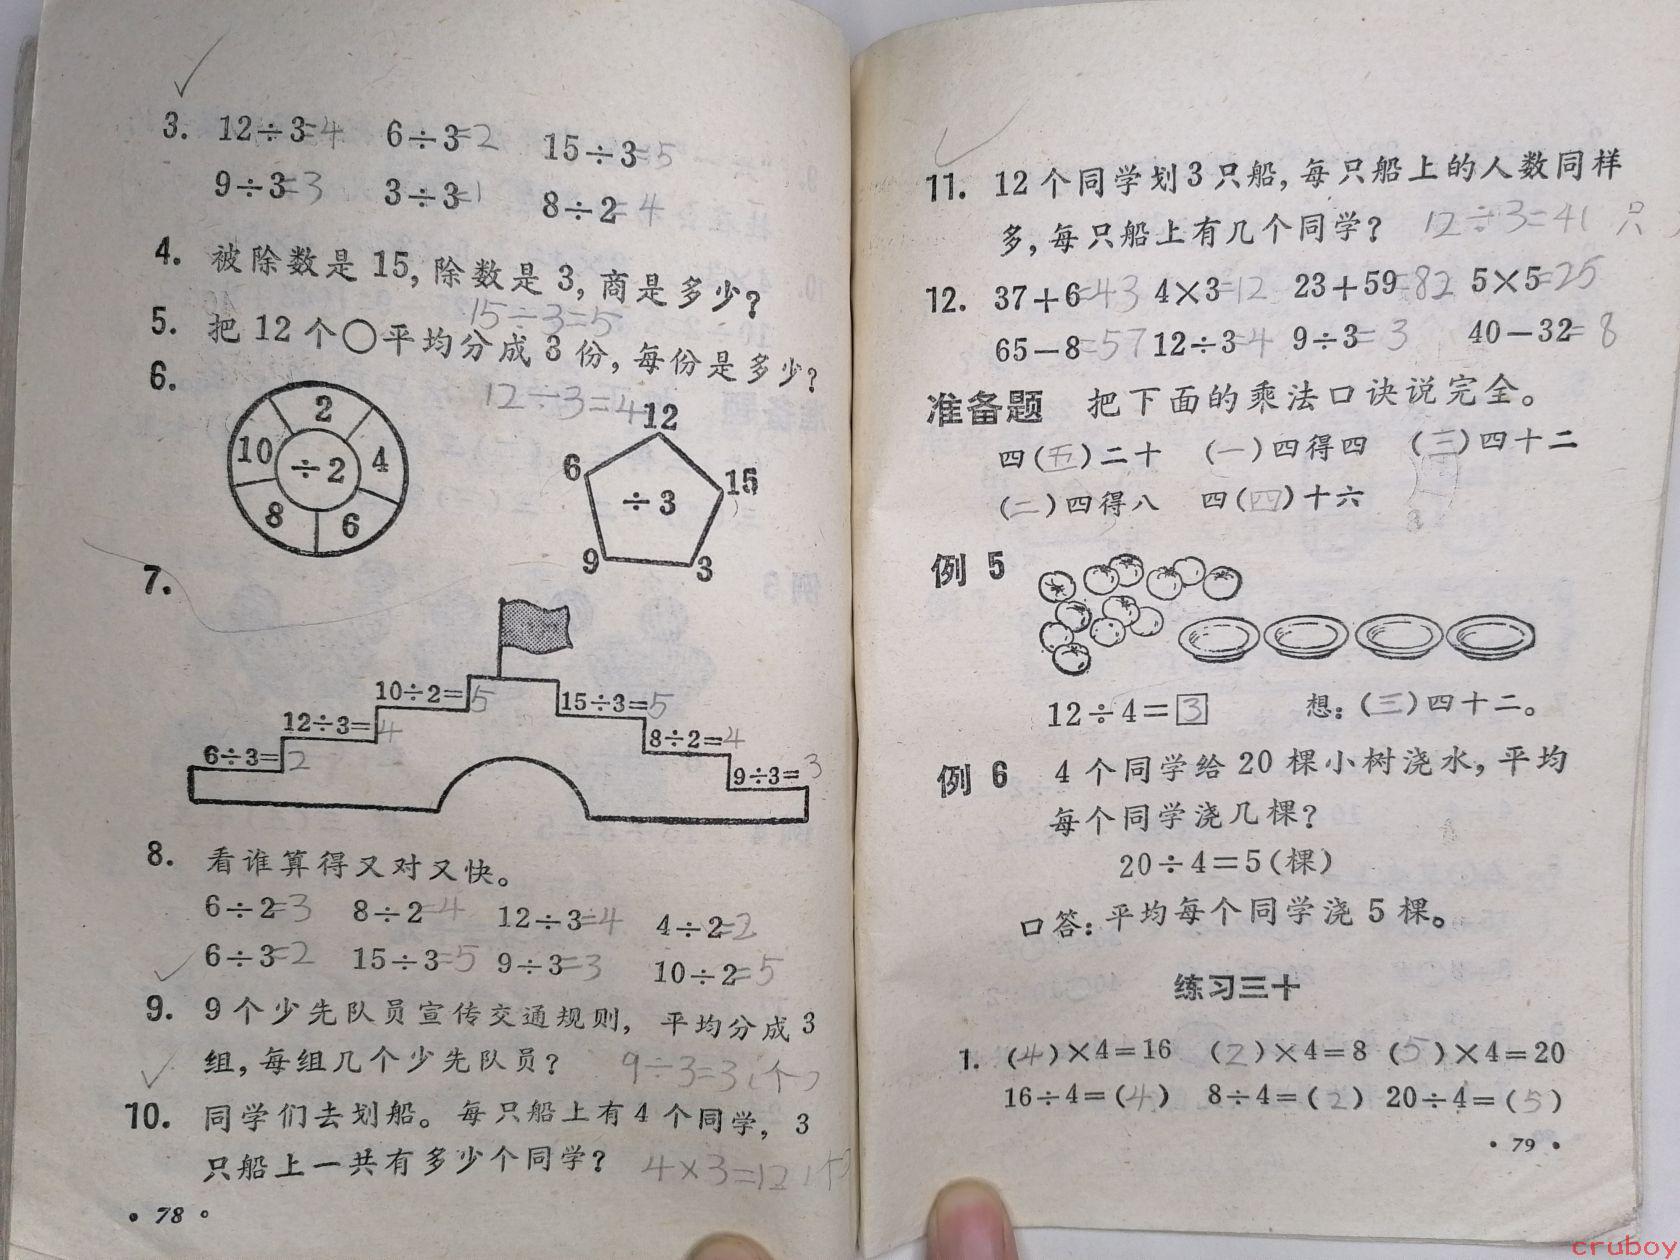 3. 12÷3=4 6÷3=2 15÷3=5
9÷3=3 3÷3=1 8÷2=4
4. 被除数是 15, 除数是 3, 商是多少?
15÷3=5
5. 把 12 个○平均分成 3 份, 每份是多少?
12÷3=4
6.
2
10 ÷2 4
8 6
12
6 15
÷3
9 3
7.
10÷2=5 15÷3=5
12÷3=4 8÷2=4
6÷3=2 9÷3=3
8. 看谁算得又对又快。
6÷2=3 8÷2=4 12÷3=4 4÷2=2
6÷3=2 15÷3=5 9÷3=3 10÷2=5
9. 9 个少先队员宣传交通规则, 平均分成 3
组, 每组几个少先队员? 9÷3=3(个)
10. 同学们去划船。每只船上有 4 个同学, 3
只船上一共有多少个同学? 4×3=12(个)
• 78 •
11. 12 个同学划 3 只船, 每只船上的人数同样
多, 每只船上有几个同学? 12÷3=4(只)
12. 37+6=43 4×3=12 23+59=82 5×5=25
65-8=57 12÷3=4 9÷3=3 40-32=8
准备题 把下面的乘法口诀说完全。
四(五)二十 (一)四得四 (三)四十二
(二)四得八 四(四)十六
例 5
12÷4=3 想: (三)四十二。
例 6 4 个同学给 20 棵小树浇水, 平均
每个同学浇几棵?
20÷4=5(棵)
口答: 平均每个同学浇 5 棵。
练习三十
1. (4)×4=16 (2)×4=8 (5)×4=20
16÷4=(4) 8÷4=(2) 20÷4=(5)
• 79 •
cruboy